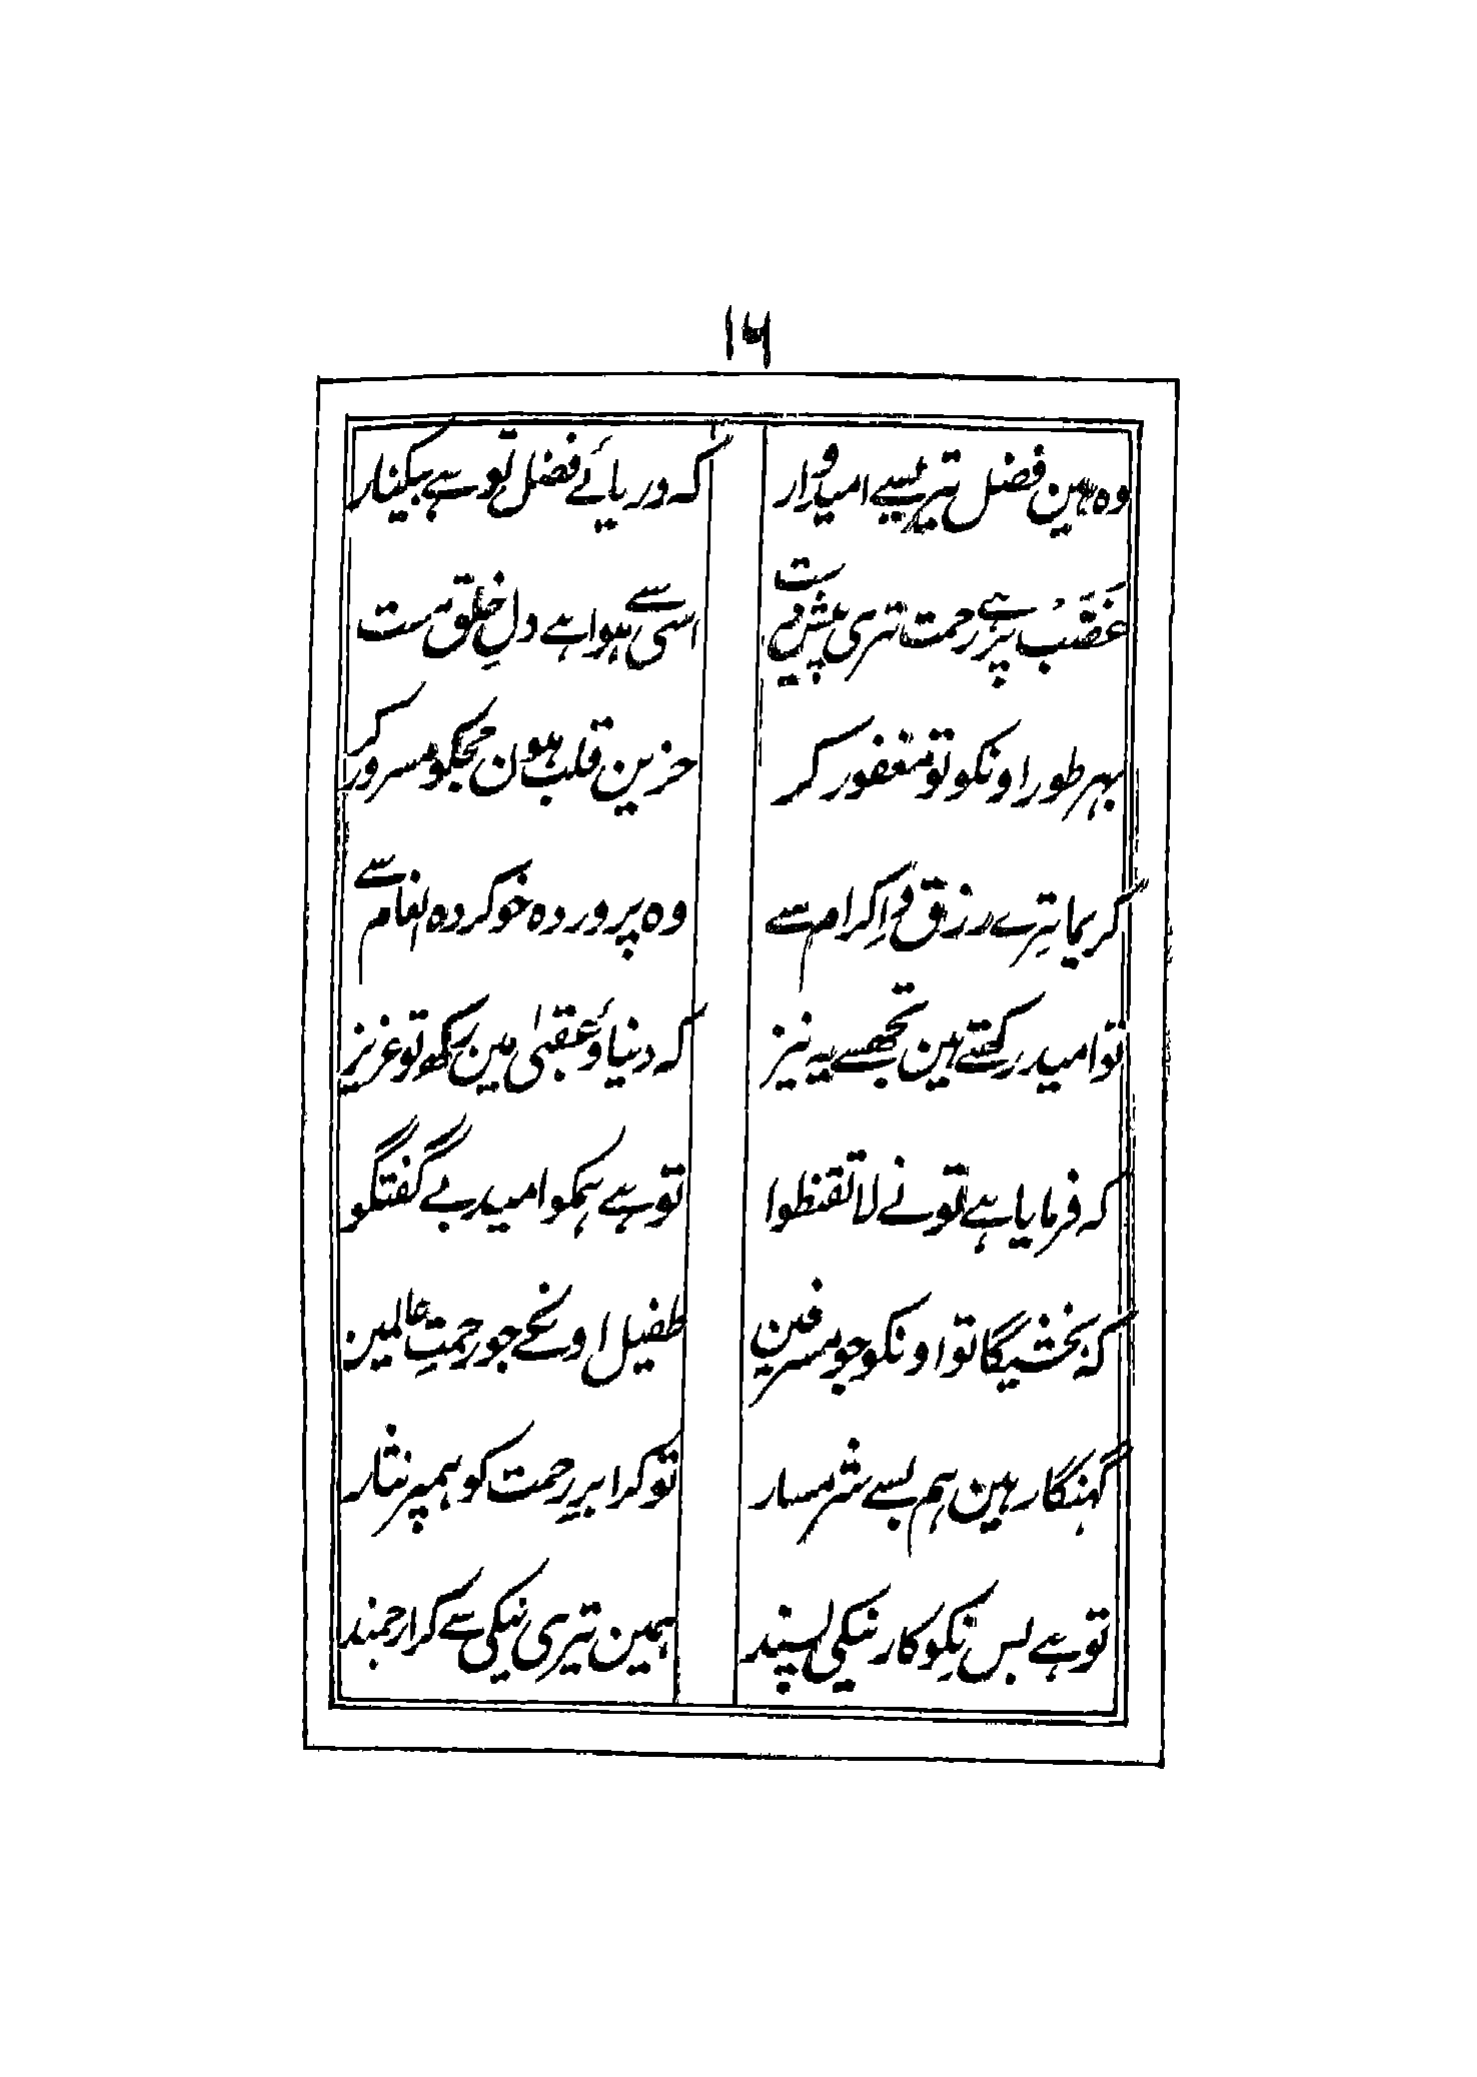 ۱۶
وہ ہین فضل تیرے سے امیدوار
کہ دریائے فضل تو ہے بیکنار
غَضَبْ پر ہے رحمت تری پیش دست
اسی سے ہوا ہے دلِ خلق مست
بہر طور اونکو تو مغفور کر
حزین قلب ہون مجکو مسرور کر
کریما تِرے رزق و اِکرام سے
وہ پروردہ خو کردہ انعام سے
تو امید رکھتے ہین تجھسے یہ نیز
کہ دنیا و عقبیٰ مین رکھ تو عزیز
کہ فرمایا ہے تو نے لا تقنطوا
تو ہے ہمکو امید بے گفتگو
کہ بخشیگا تو اونکو جو مسرفین
طفیل اونکے جو رحمتِ عالمین
گہنگار ہین ہم بسے شرمسار
تو کر ابرِ رحمت کو ہمپر نثار
تو ہے بس نِکو کار نیکی پسند
ہمین تیری نیکی سے کر ارجمند